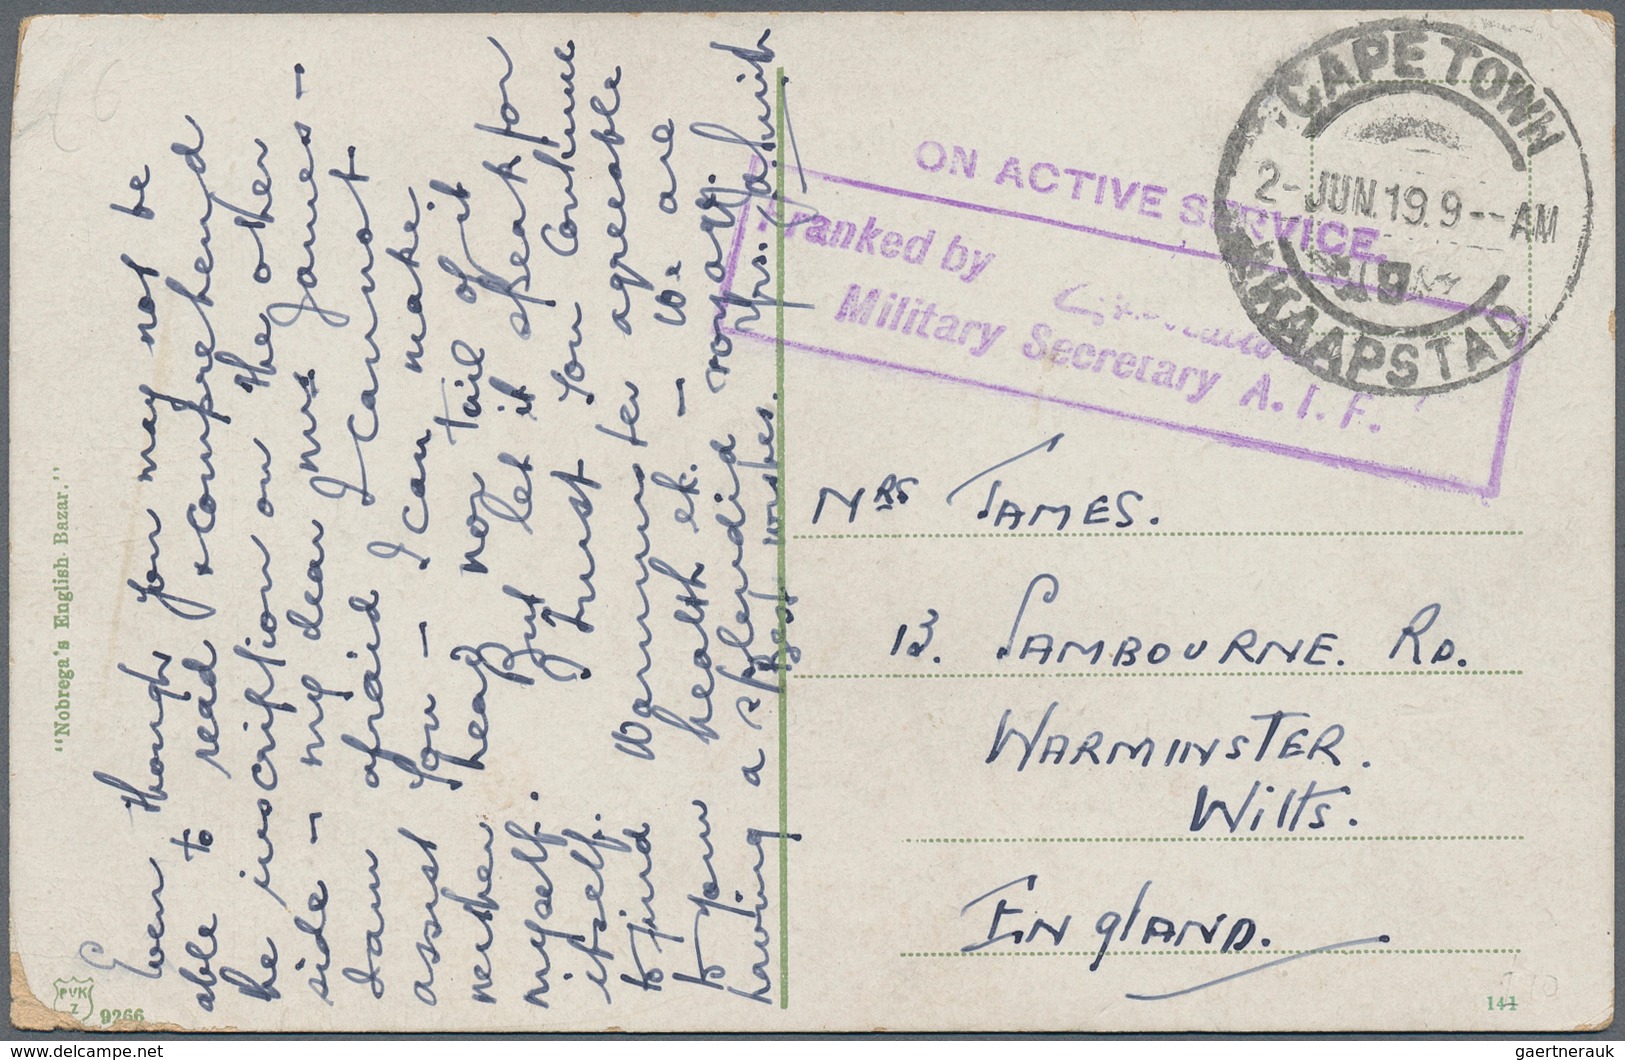 Even though you may not be
able to read & comprehend
the inscription on the other
side – my dear Mrs James –
I am afraid I cannot
assist you – I can make
neither head nor tail of it
myself. But let it speak for
itself. Trust you continue
to find Warminster agreeable
to your health etc. – We are
having a splendid voyage.
Best wishes.
"Nobrega's English Bazar."
PVK
Z
9266
CAPE TOWN
2-JUN.19.9--AM
19
KAAPSTAD
ON ACTIVE SERVICE.
Franked by
Military Secretary A.I.F.
Mrs JAMES.
13. SAMBOURNE. RD.
WARMINSTER.
Wilts.
ENglAND.
141
110
gaertnerauk